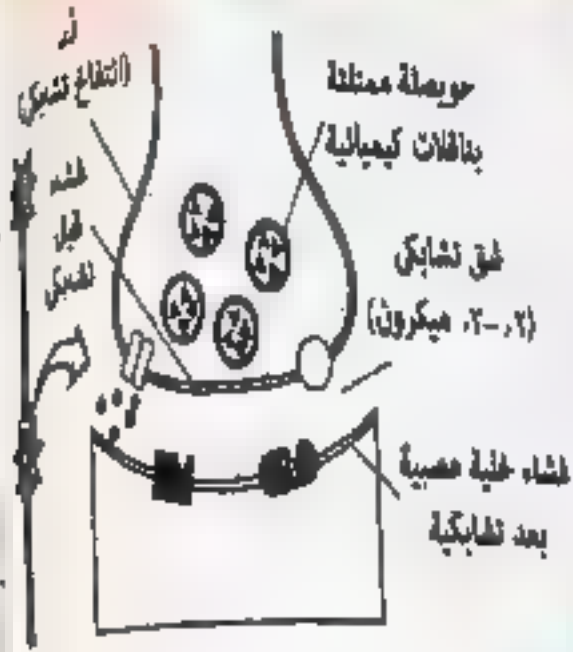 زر
(انتفاخ تشابكي)
غشاء
قبل
تشابكي
حويصلة ممتلئة
بناقلات كيميائية
شق تشابكي
(٠,٢-٠,٣ ميكرون)
غشاء خلية عصبية
بعد تشابكية